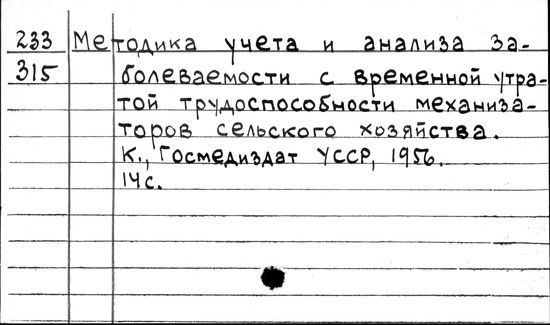 233 Методика учета и анализа за-
315 болеваемости с временной утра-
той трудоспособности механиза-
торов сельского хозяйства.
К., Госмедиздат УССР, 1956.
14с.